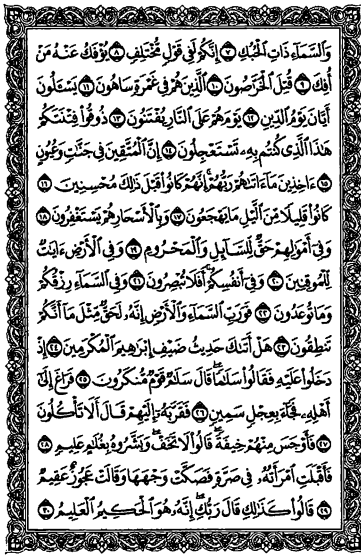 وَالسَّمَاءِ ذَاتِ الْحُبُكِ ٧ إِنَّكُمْ لَفِي قَوْلٍ مُّخْتَلِفٍ ٨ يُؤْفَكُ عَنْهُ مَنْ
أُفِكَ ٩ قُتِلَ الْخَرَّاصُونَ ١٠ الَّذِينَ هُمْ فِي غَمْرَةٍ سَاهُونَ ١١ يَسْـَٔلُونَ
أَيَّانَ يَوْمُ الدِّينِ ١٢ يَوْمَ هُمْ عَلَى النَّارِ يُفْتَنُونَ ١٣ ذُوقُوا فِتْنَتَكُمْ
هَٰذَا الَّذِي كُنتُم بِهِ تَسْتَعْجِلُونَ ١٤ إِنَّ الْمُتَّقِينَ فِي جَنَّٰتٍ وَعُيُونٍ
١٥ ءَاخِذِينَ مَا ءَاتَىٰهُمْ رَبُّهُمْ إِنَّهُمْ كَانُوا قَبْلَ ذَٰلِكَ مُحْسِنِينَ ١٦
كَانُوا قَلِيلًا مِّنَ الَّيْلِ مَا يَهْجَعُونَ ١٧ وَبِالْأَسْحَارِ هُمْ يَسْتَغْفِرُونَ ١٨
وَفِي أَمْوَٰلِهِمْ حَقٌّ لِّلسَّائِلِ وَالْمَحْرُومِ ١٩ وَفِي الْأَرْضِ ءَايَٰتٌ
لِّلْمُوقِنِينَ ٢٠ وَفِي أَنفُسِكُمْ أَفَلَا تُبْصِرُونَ ٢١ وَفِي السَّمَاءِ رِزْقُكُمْ
وَمَا تُوعَدُونَ ٢٢ فَوَرَبِّ السَّمَاءِ وَالْأَرْضِ إِنَّهُ لَحَقٌّ مِّثْلَ مَا أَنَّكُمْ
تَنطِقُونَ ٢٣ هَلْ أَتَىٰكَ حَدِيثُ ضَيْفِ إِبْرَٰهِيمَ الْمُكْرَمِينَ ٢٤ إِذْ
دَخَلُوا عَلَيْهِ فَقَالُوا سَلَٰمًا قَالَ سَلَٰمٌ قَوْمٌ مُّنكَرُونَ ٢٥ فَرَاغَ إِلَىٰ
أَهْلِهِ فَجَاءَ بِعِجْلٍ سَمِينٍ ٢٦ فَقَرَّبَهُ إِلَيْهِمْ قَالَ أَلَا تَأْكُلُونَ
٢٧ فَأَوْجَسَ مِنْهُمْ خِيفَةً قَالُوا لَا تَخَفْ وَبَشَّرُوهُ بِغُلَٰمٍ عَلِيمٍ ٢٨
فَأَقْبَلَتِ امْرَأَتُهُ فِي صَرَّةٍ فَصَكَّتْ وَجْهَهَا وَقَالَتْ عَجُوزٌ عَقِيمٌ
٢٩ قَالُوا كَذَٰلِكِ قَالَ رَبُّكِ إِنَّهُ هُوَ الْحَكِيمُ الْعَلِيمُ ٣٠